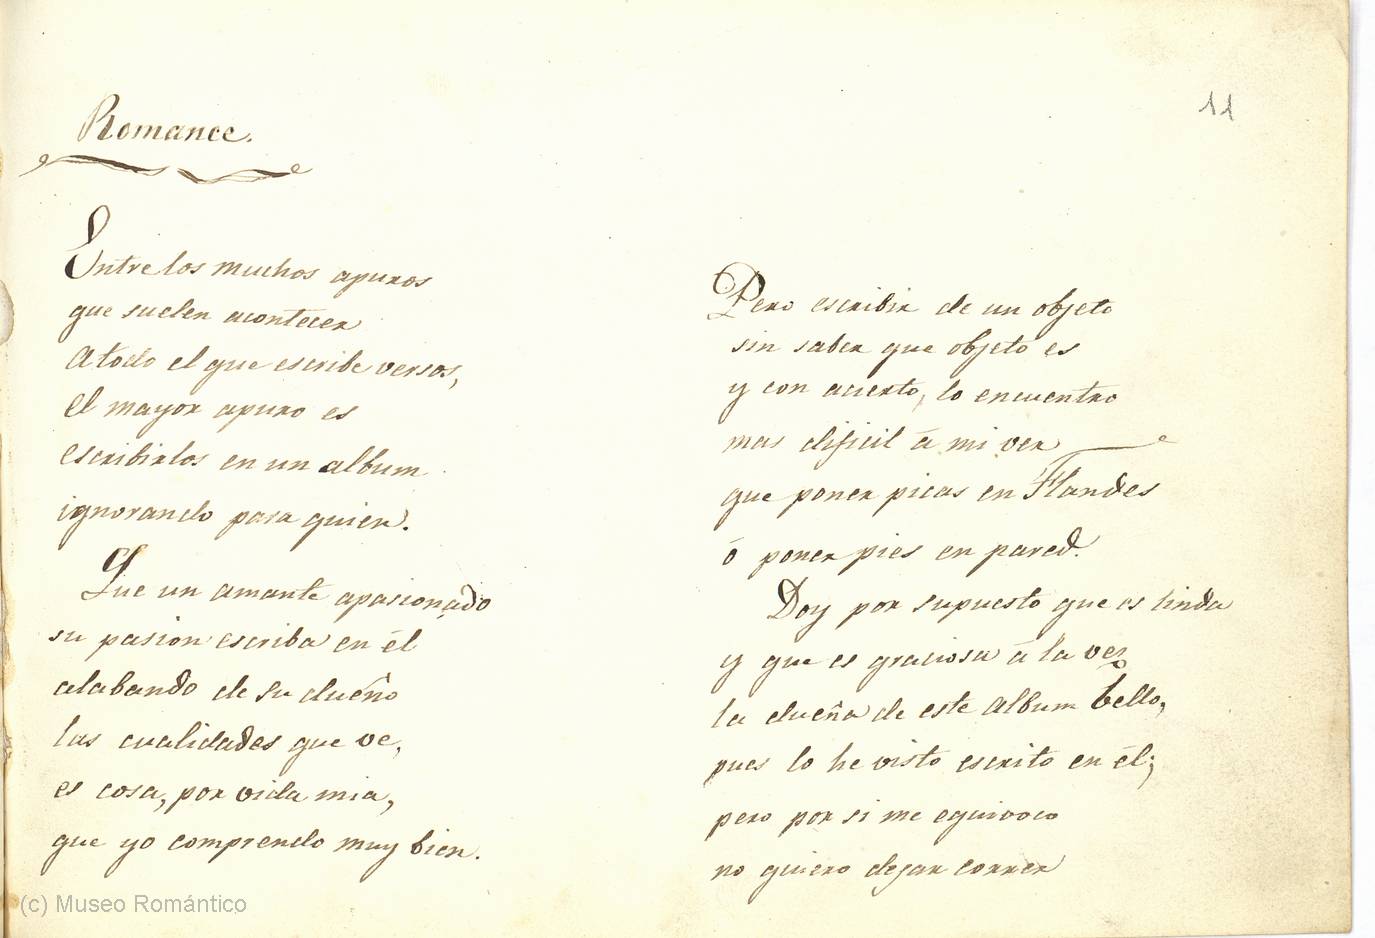 11
Romance.
Entre los muchos apuros
que suelen acontecer
a todo el que escribe versos,
el mayor apuro es
escribirlos en un album
ignorando para quien.
Que un amante apasionado
su pasion escriba en él
alabando de su dueño
las cualidades que ve,
es cosa, por vida mia,
que yo comprendo muy bien.
Pero escribir de un objeto
sin saber que objeto es
y con acierto, lo encuentro
mas dificil á mi ver
que poner picas en Flandes
ó poner pies en pared.
Doy por supuesto que es linda
y que es graciosa á la vez
la dueña de este album bello,
pues lo he visto escrito en él;
pero por si me equivoco
no quiero dejar correr
(c) Museo Romántico